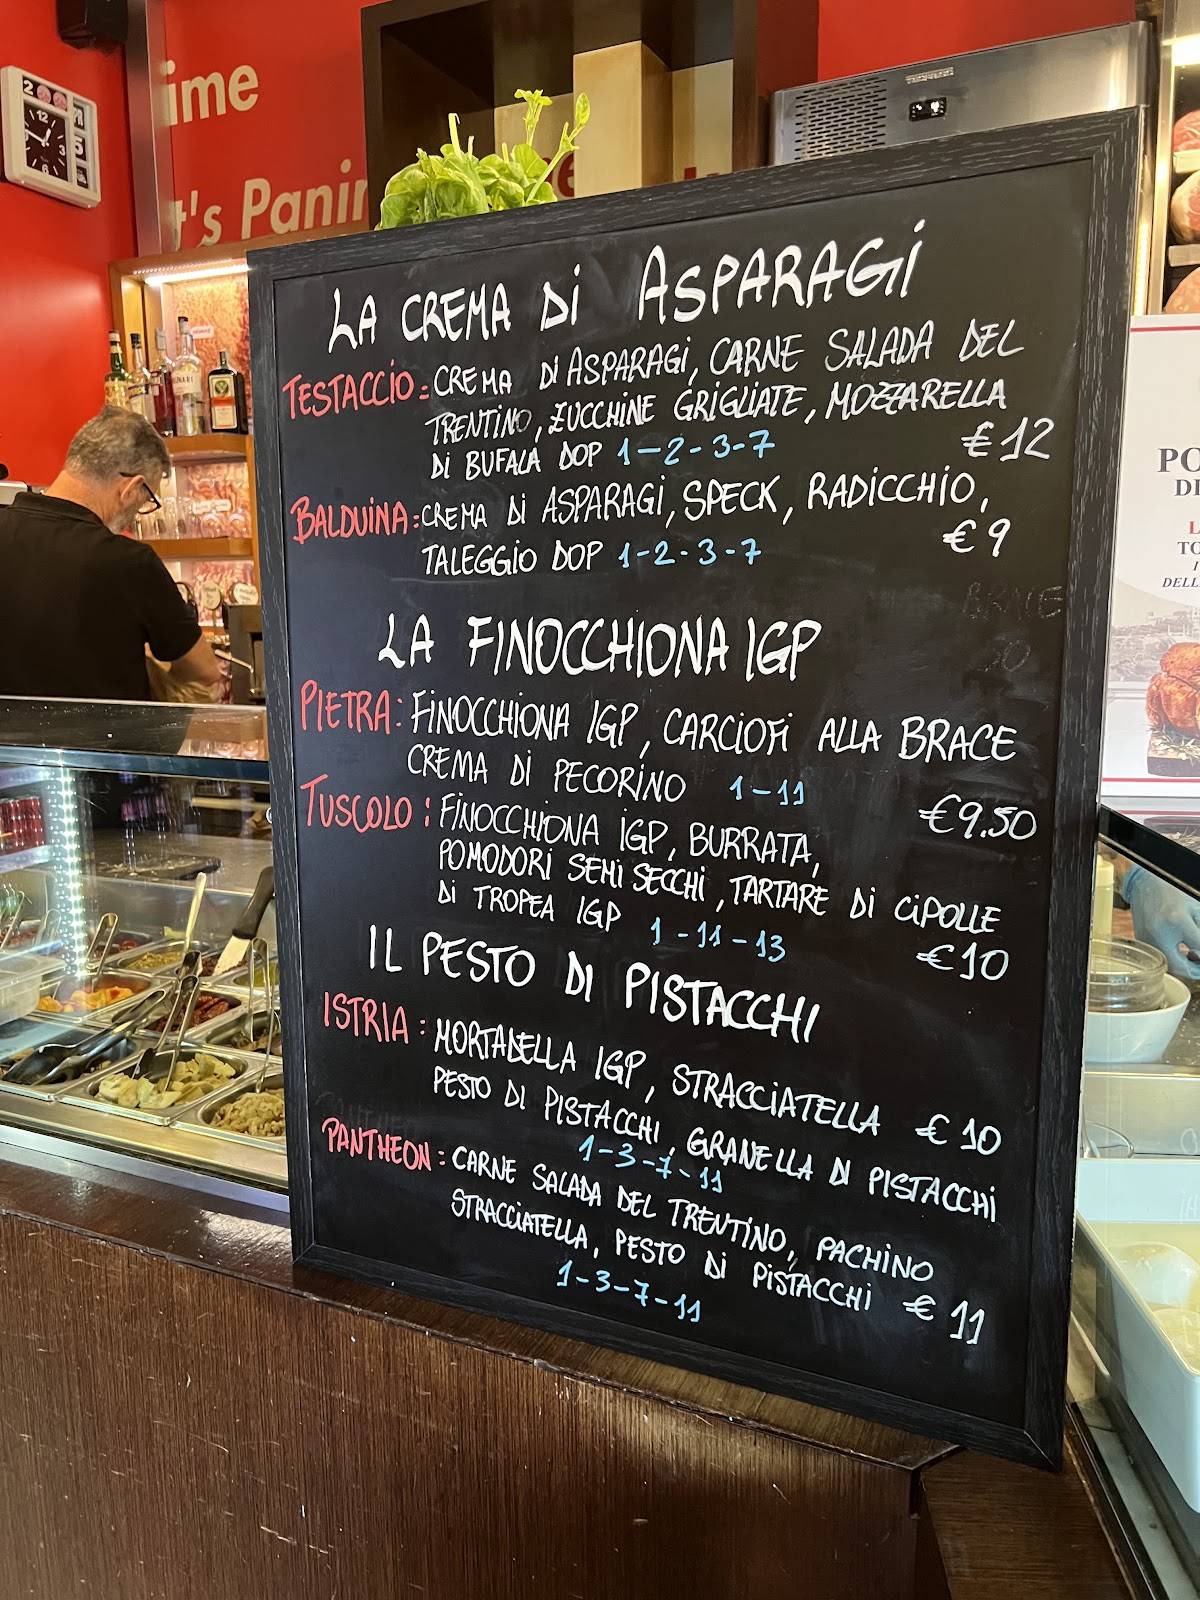 ime
t's Panin
12
3
LA CREMA Di ASPARAGi
TESTACCIO: CREMA Di ASPARAGi, CARNE SALADA DEL
TRENTINO, ZUCCHINE GRIGLIATE, MOZZARELLA
Di BUFALA DOP 1-2-3-7 €12
BALDUiNA: CREMA Di ASPARAGi, SPECK, RADICCHIO,
TALEGGIO DOP 1-2-3-7 €9
BRACE
LA FINOCCHIONA IGP
PIETRA: FiNOCCHIONA IGP, CARCIOFi ALLA BRACE
CREMA Di PECORINO 1-11 €9.50
TUSCOLO: FiNOCCHIONA IGP, BURRATA,
POMODORI SEMI SECCHI, TARTARE Di CiPOLLE
Di TROPEA IGP 1-11-13 €10
IL PESTO Di PISTACCHI
ISTRIA: MORTADELLA IGP, STRACCIATELLA €10
PESTO Di PISTACCHI, GRANELLA Di PISTACCHI
1-3-7-11
PANTHEON: CARNE SALADA DEL TRENTINO, PACHINO
STRACCIATELLA, PESTO Di PISTACCHI €11
1-3-7-11
PO
DI
L
TO
I
DELL